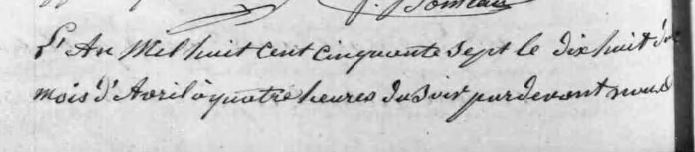 L'An Mil huit cent cinquante sept le dix huit du
mois d'Avril à quatre heures du soir pardevant nous